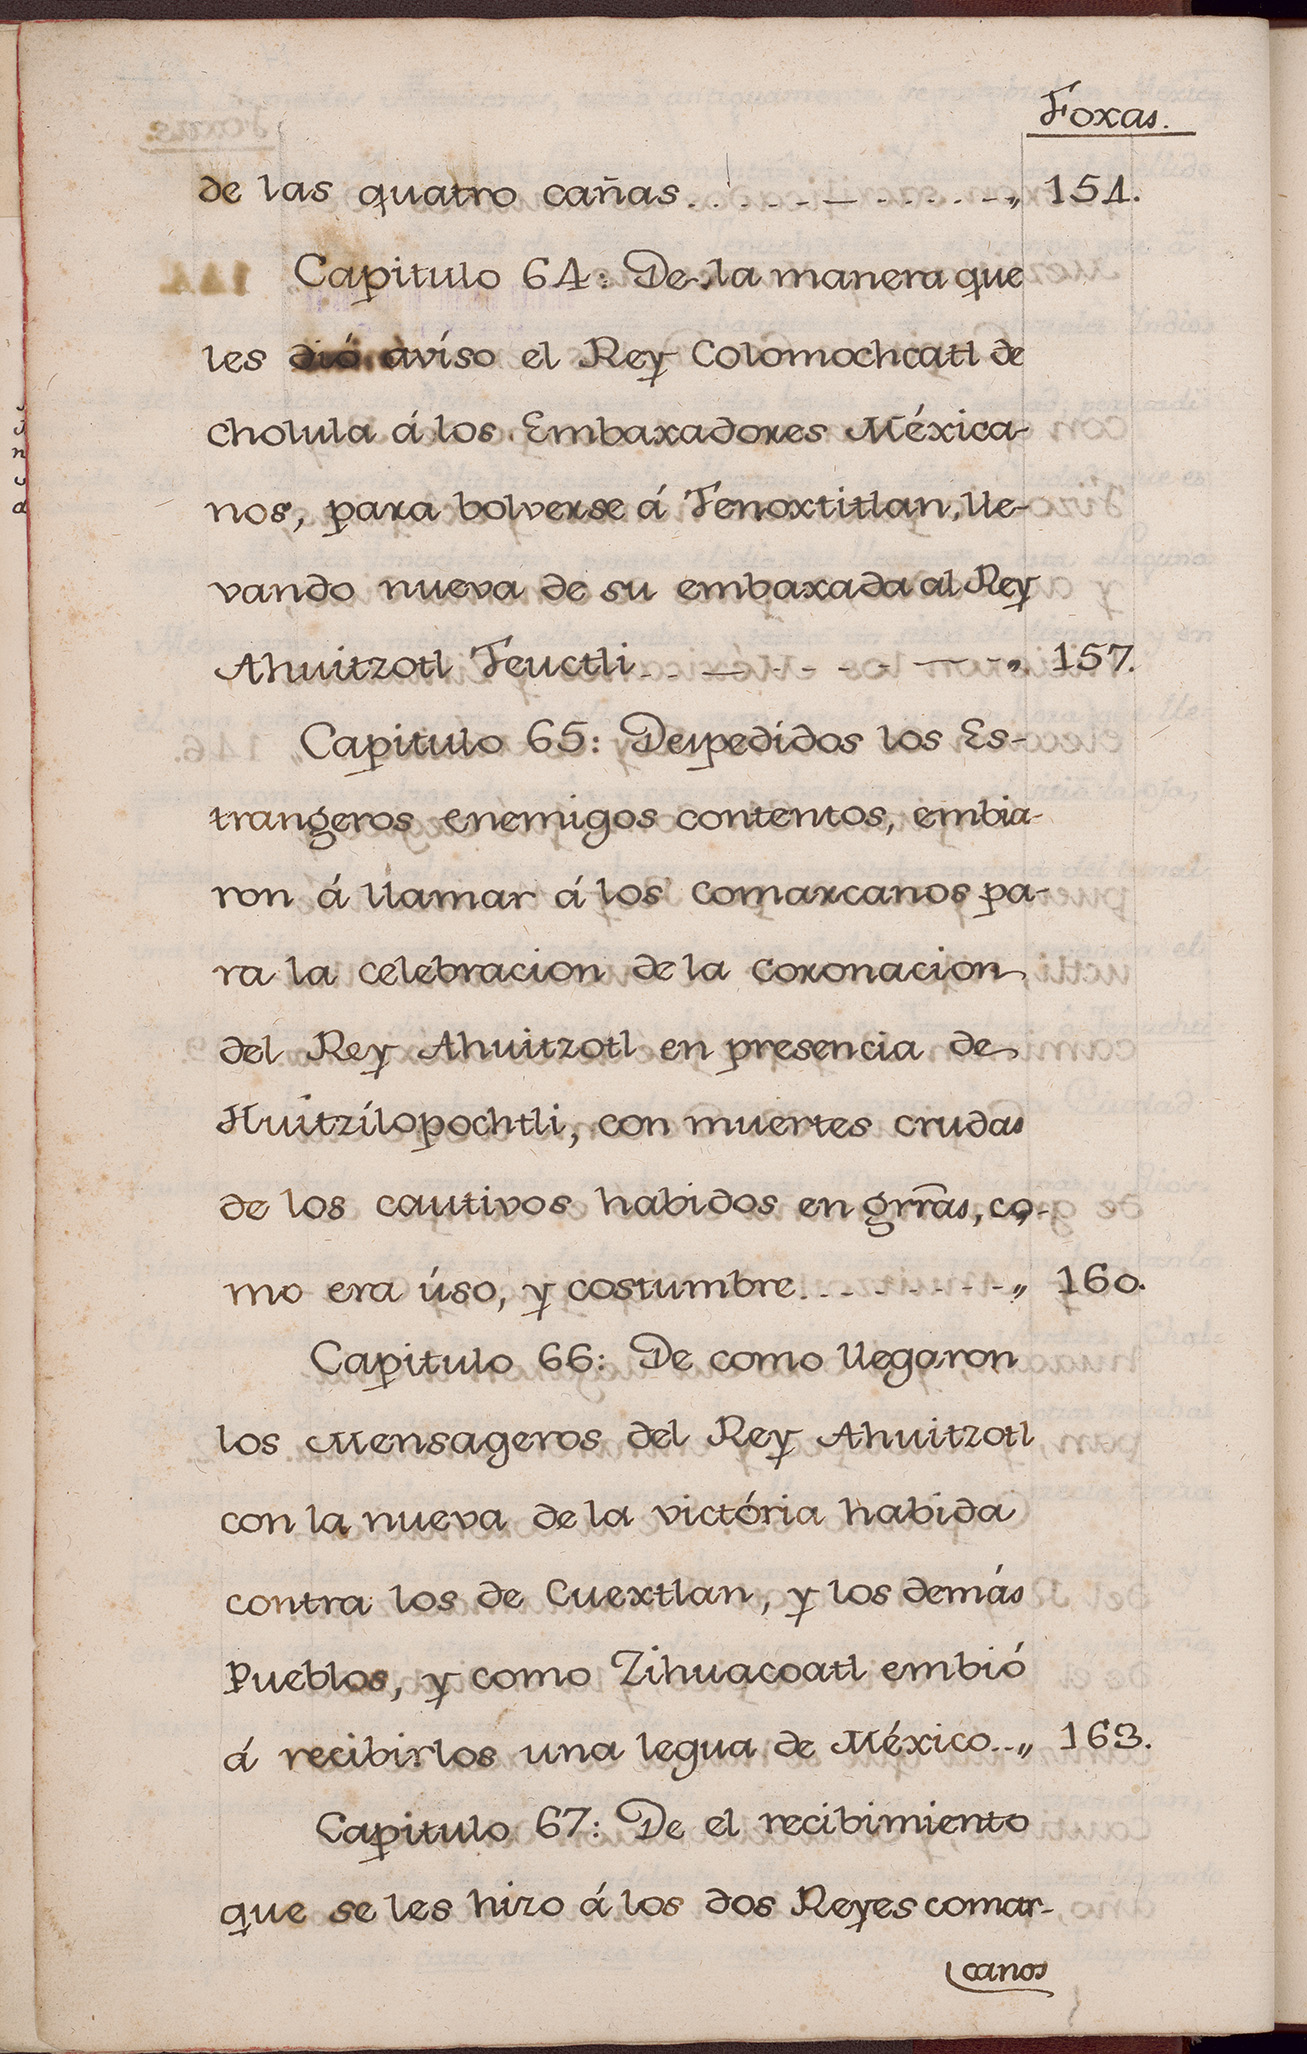 Foxas.
de las quatro cañas. . . . . — . . . . . „ 154.
Capitulo 64: De la manera que
les dió avíso el Rey Colomochcatl de
Cholula á los Embaxadores Méxica-
nos, para bolverse á Tenoxtitlan, lle-
vando nueva de su embaxada al Rey
Ahuitzotl Teuctli. . . — . . . . — . „ 157.
Capitulo 65: Despedídos los Es-
trangeros enemigos contentos, embia-
ron á llamar á los Comarcanos pa-
ra la celebracion de la Coronacion
del Rey Ahuitzotl en presencia de
Huitzílopochtli, con muertes crudas
de los cautivos habidos en grr̃as, co-
mo era úso, y costumbre. . . . . . . . „ 160.
Capitulo 66: De como llegaron
los Mensageros del Rey Ahuitzotl
con la nueva de la victória habida
contra los de Cuextlan, y los demás
Pueblos, y como Zihuacoatl embió
á recibirlos una legua de México. . „ 163.
Capitulo 67: De el recibimiento
que se les hizo á los dos Reyes comar-
canos